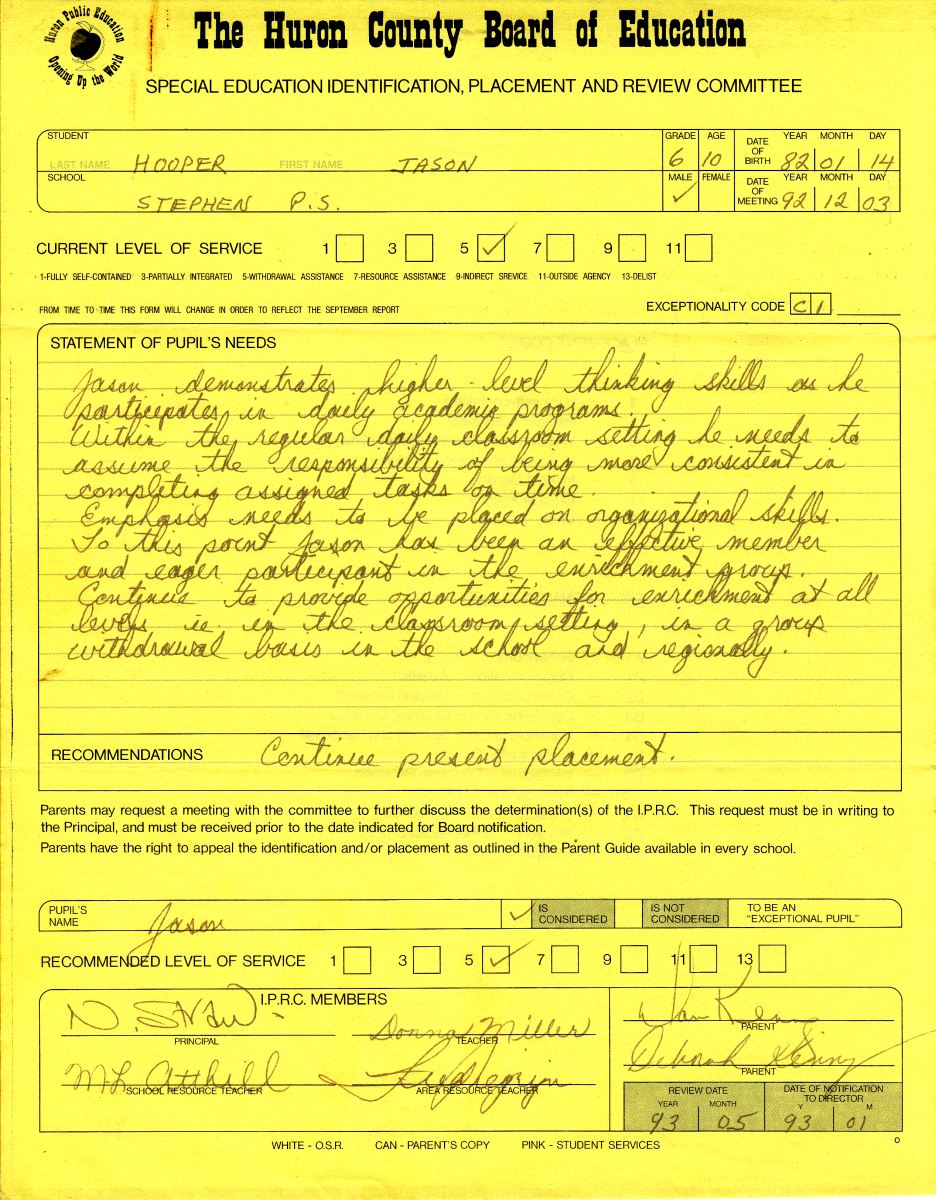 Huron Public Education
Opening Up the World
The Huron County Board of Education
SPECIAL EDUCATION IDENTIFICATION, PLACEMENT AND REVIEW COMMITTEE
STUDENT GRADE AGE DATE OF BIRTH YEAR MONTH DAY
LAST NAME HOOPER FIRST NAME JASON 6 10 82 01 14
SCHOOL MALE FEMALE DATE OF MEETING YEAR MONTH DAY
STEPHEN P.S. ✓ 92 12 03
CURRENT LEVEL OF SERVICE 1 3 5 ✓ 7 9 11
1-FULLY SELF-CONTAINED 3-PARTIALLY INTEGRATED 5-WITHDRAWAL ASSISTANCE 7-RESOURCE ASSISTANCE 9-INDIRECT SREVICE 11-OUTSIDE AGENCY 13-DELIST
FROM TIME TO TIME THIS FORM WILL CHANGE IN ORDER TO REFLECT THE SEPTEMBER REPORT EXCEPTIONALITY CODE C 1
STATEMENT OF PUPIL'S NEEDS
Jason demonstrates higher-level thinking skills as he
participates in daily academic programs.
Within the regular daily classroom setting he needs to
assume the responsibility of being more consistent in
completing assigned tasks on time.
Emphasis needs to be placed on organizational skills.
To this point Jason has been an effective member
and eager participant in the enrichment group.
Continue to provide opportunities for enrichment at all
levels ie. in the classroom setting, in a group
withdrawal basis in the school and regionally.
RECOMMENDATIONS Continue present placement.
Parents may request a meeting with the committee to further discuss the determination(s) of the I.P.R.C. This request must be in writing to
the Principal, and must be received prior to the date indicated for Board notification.
Parents have the right to appeal the identification and/or placement as outlined in the Parent Guide available in every school.
PUPIL'S NAME Jason ✓ IS CONSIDERED IS NOT CONSIDERED TO BE AN "EXCEPTIONAL PUPIL"
RECOMMENDED LEVEL OF SERVICE 1 3 5 ✓ 7 9 11 13
I.P.R.C. MEMBERS
Donna Miller
PRINCIPAL TEACHER PARENT
Deborah
SCHOOL RESOURCE TEACHER AREA RESOURCE TEACHER PARENT
REVIEW DATE DATE OF NOTIFICATION TO DIRECTOR
YEAR MONTH Y M
93 05 93 01
WHITE - O.S.R. CAN - PARENT'S COPY PINK - STUDENT SERVICES